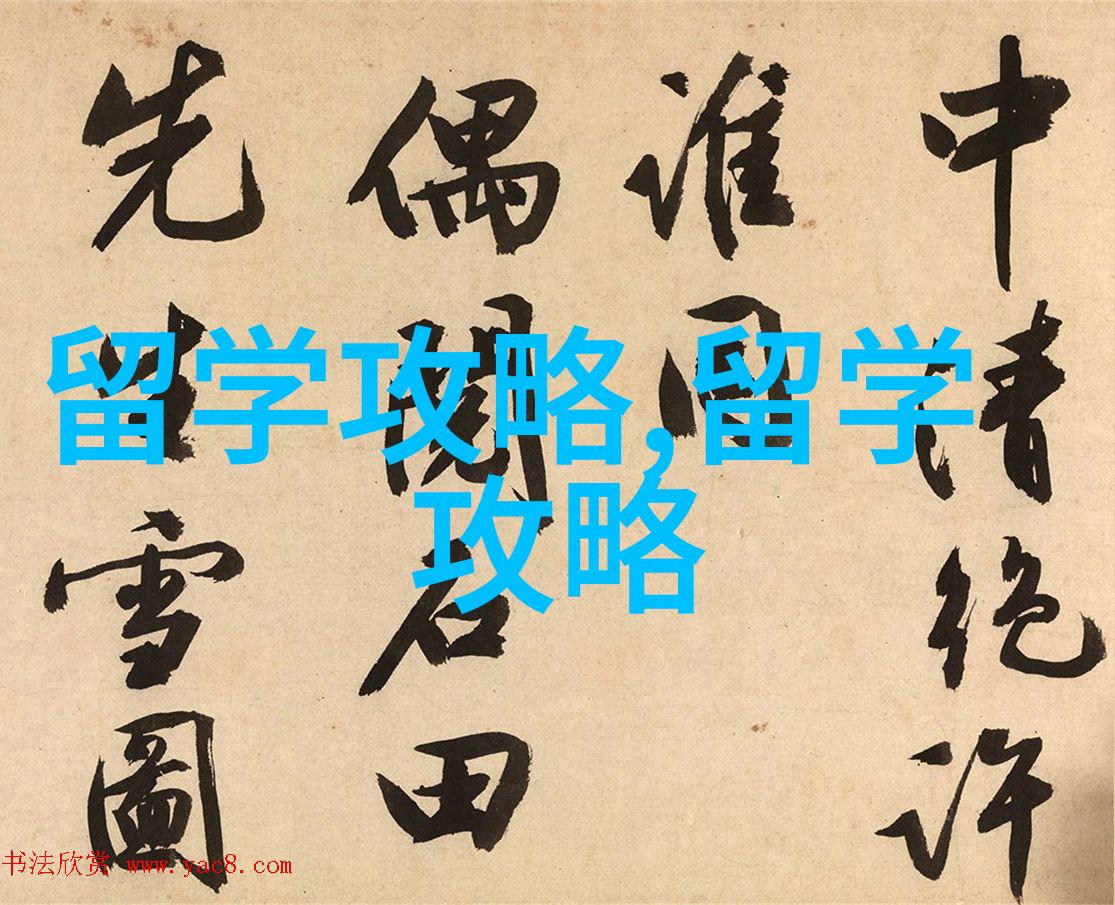 中清絕許
誰同
偶閱石田
先生雪圖
留学攻略,留学
攻略
书法欣赏 www.yac8.com